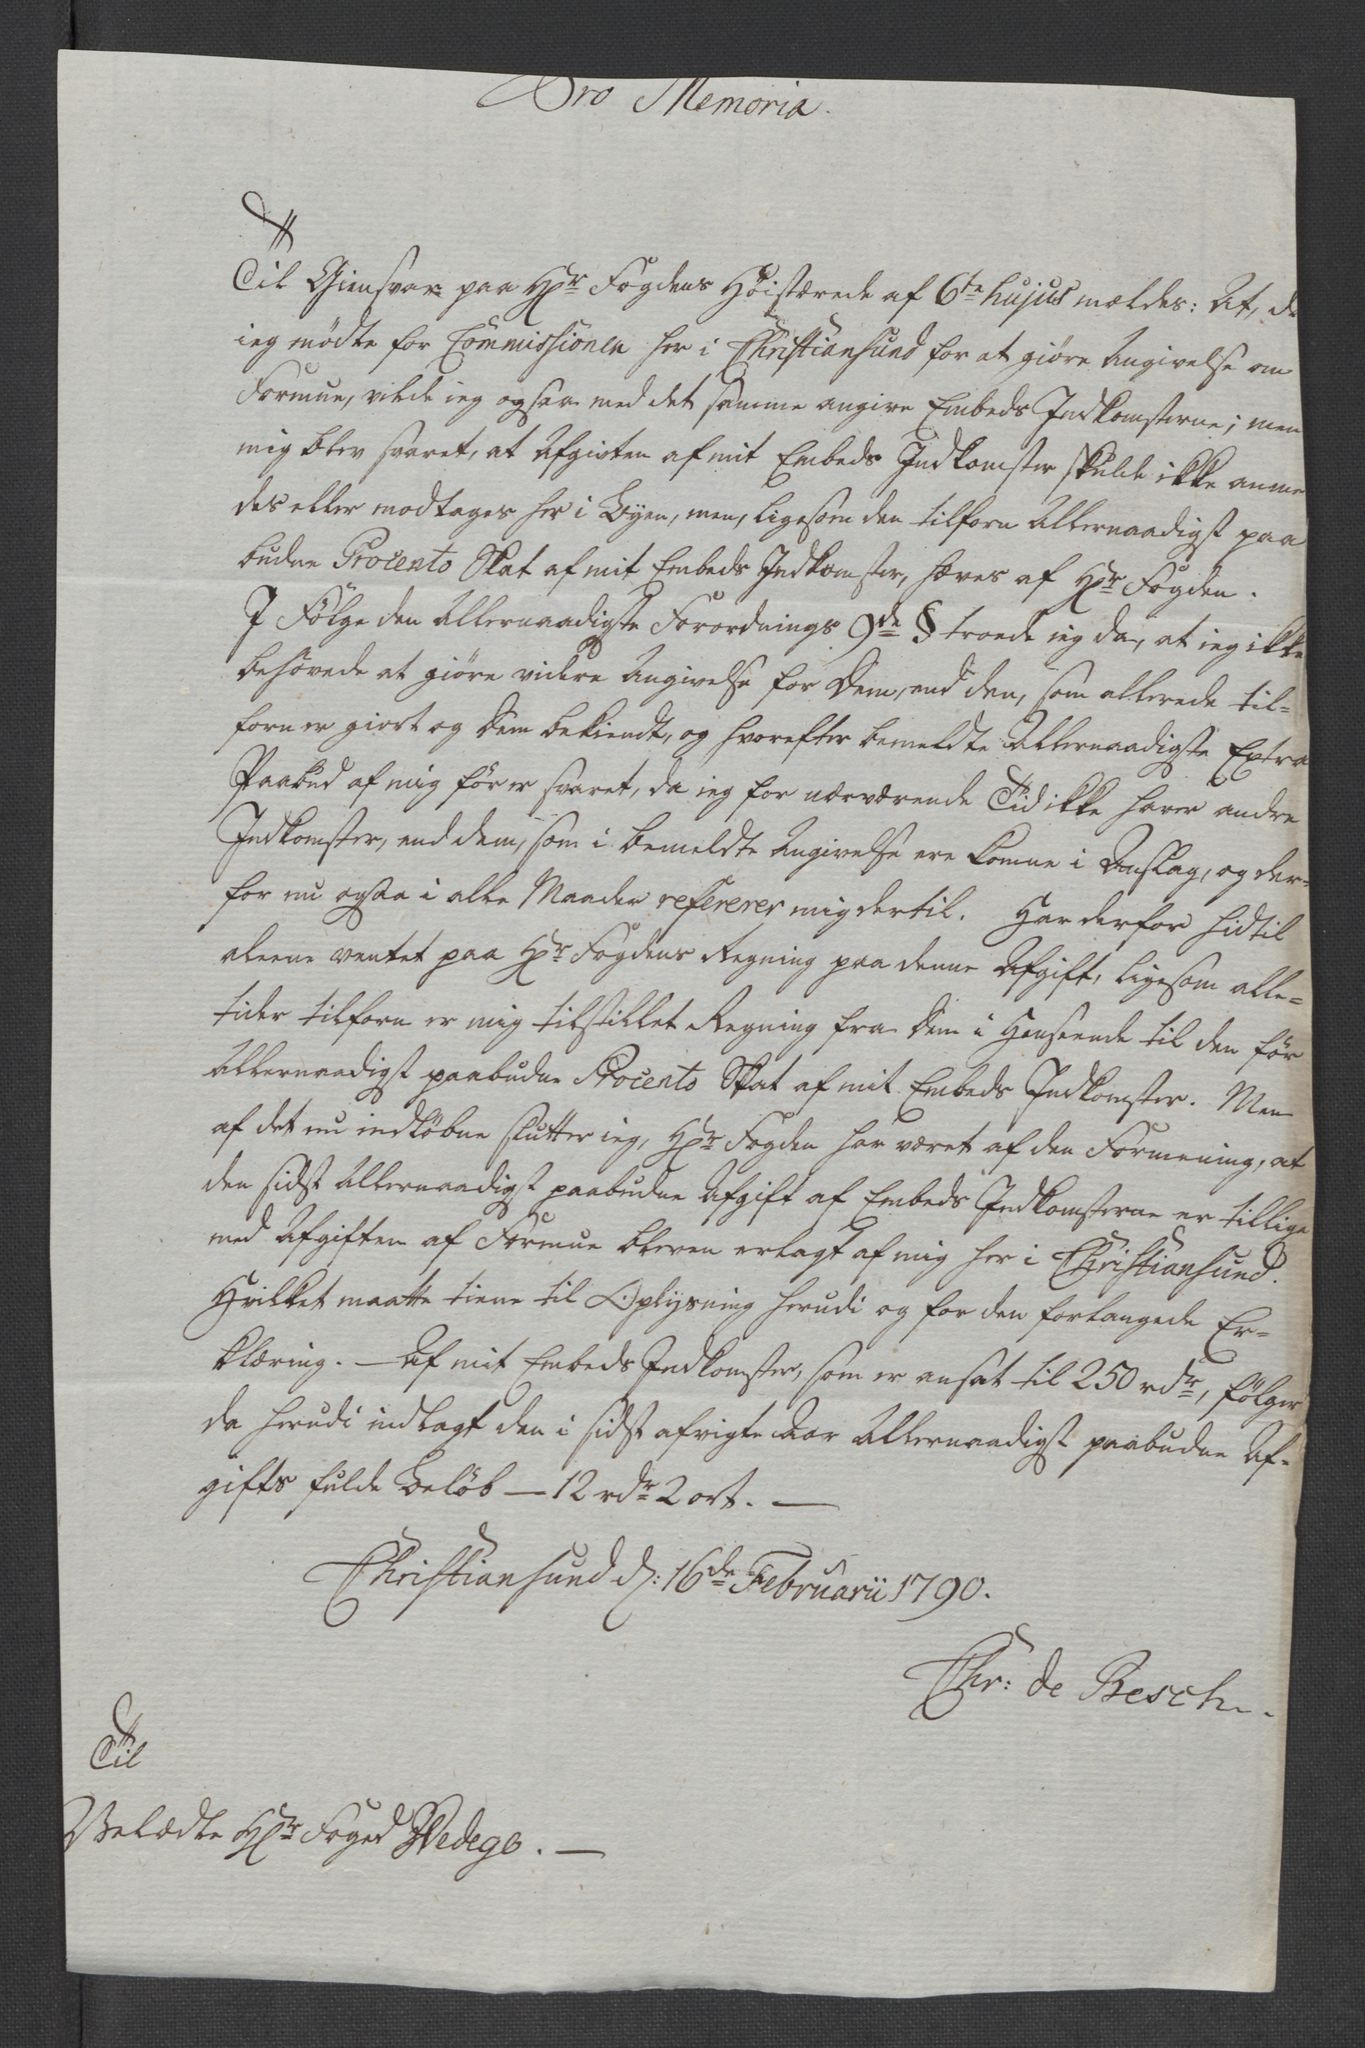 Pro Memoria.
Til Giensvar paa Hr Fogdens Høistærede af 6te hujus meldes: At, da
ieg mødte for Commissionen her i Christiansund for at giøre Angivelse om
Formue, vilde ieg ogsaa med det samme angive Embeds Indkomsterne; men
mig blev svaret, at Afgivten af mit Embeds Indkomster skulde ikke anmel
des eller modtages her i Byen, men, ligesom den tilforn Allernaadigst paa
budne Procento Skat af mit Embeds Indkomster, hæves af Hr Fogden.
I Følge den Allernaadigste Forordnings 9de § troede ieg da, at ieg ikke
behøvede at giøre videre Angivelse for Dem, end den, som allerede til=
forn er giort og Dem bekiendt, og hvorefter bemeldte Allernaadigste Extra
Paabud af mig før er svaret, da ieg for nærværende Tid ikke haver andre
Indkomster, end dem, som i bemeldte Angivelse ere komne i Anslag, og der=
for nu ogsaa i alle Maader refererer mig dertil. Har derfor hidtil
aleene ventet paa Hr Fogdens Regning paa denne Afgift, ligesom alle=
tider tilforn er mig tilstillet Regning fra Dem i Henseende til den før
Allernaadigst paabudne Procento Skat af mit Embeds Indkomster. Men
af det nu indløbne slutter ieg, Hr Fogden har været af den Formening, at
den sidst Allernaadigst paabudne Afgift af Embeds Indkomsterne er tillige
med Afgiften af Formue bleven erlagt af mig her i Christiansund.
Hvilket maatte tiene til Oplysning herudi og for den forlangede Er=
klæring. — Af mit Embeds Indkomster, som er ansat til 250 rdr, følger
da herudi indlagt den i sidst afvigte Aar Allernaadigst paabudne Af=
gifts fulde Beløb — 12 rdr 2 ort. —
Christiansund d: 16de Februarii 1790.
Chr: de Besche.
Til
Velædle Hr Foged Wedege. —